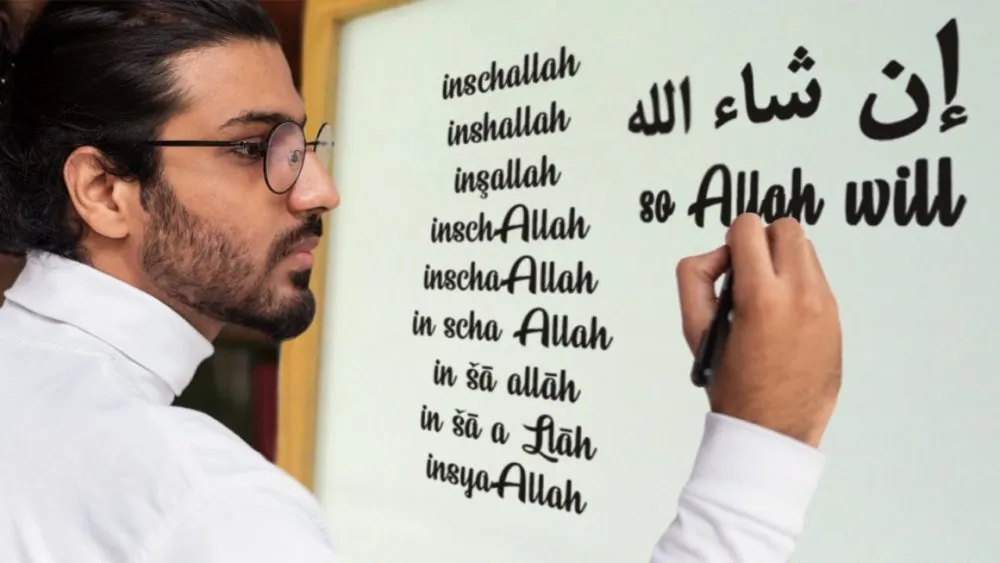 inschallah
inshallah
inşallah
inschAllah
inschaAllah
in scha Allah
in šā allāh
in šā a Llāh
insyaAllah
إن شاء الله
so Allah will